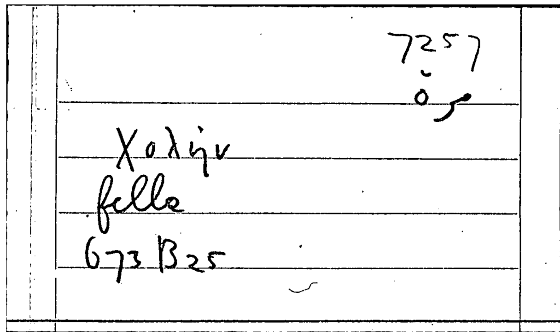 7257
مرة
χολήν
fella
673 B 25